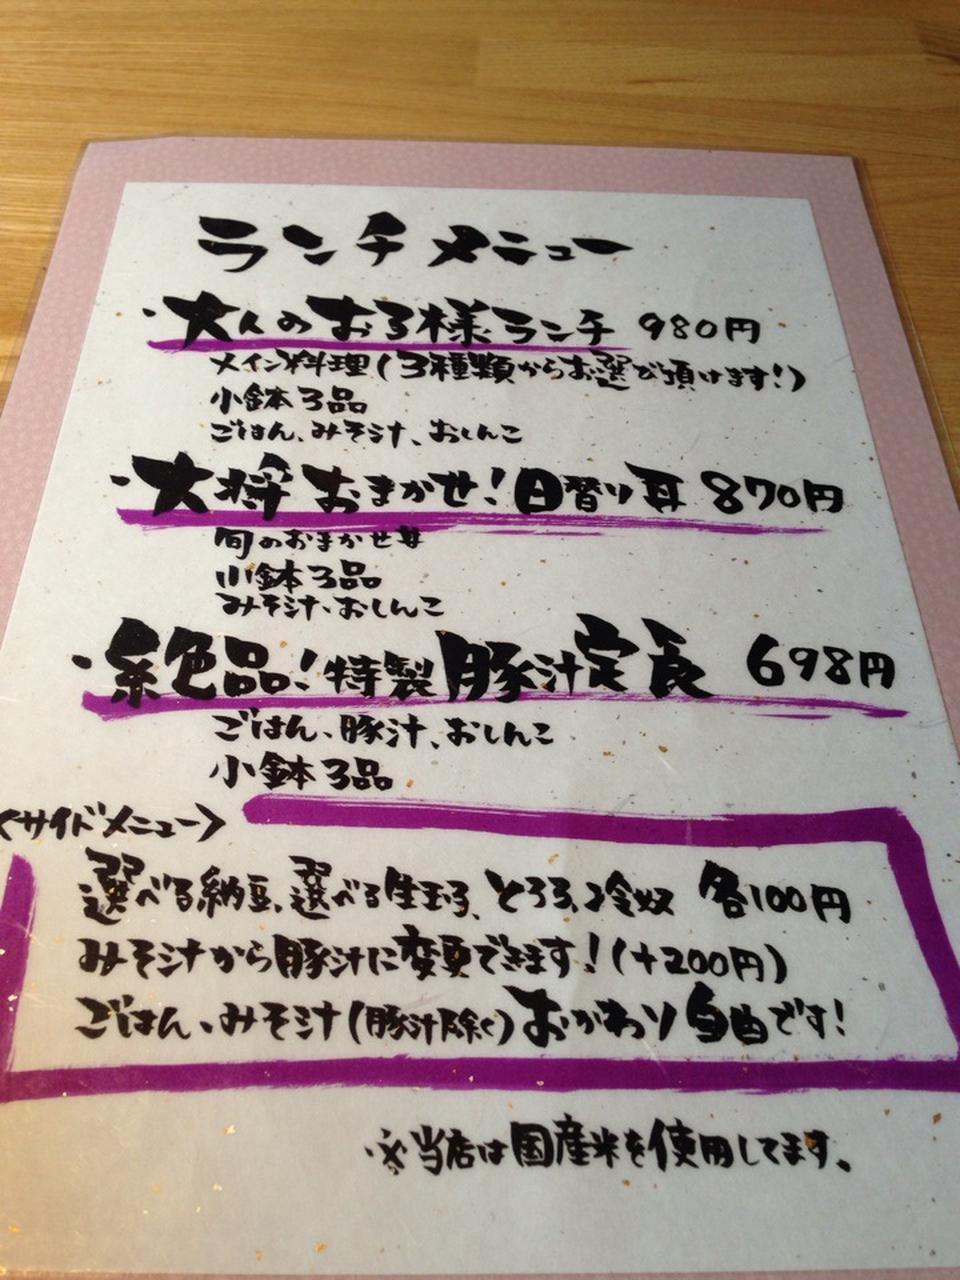 ランチメニュー
・大人のお子様ランチ 980円
メイン料理(3種類からお選び頂けます!)
小鉢3品
ごはん、みそ汁、おしんこ
・大将おまかせ!日替り丼 870円
旬のおまかせ丼
小鉢3品
みそ汁、おしんこ
・絶品!特製豚汁定食 698円
ごはん、豚汁、おしんこ
小鉢3品
<サイドメニュー>
選べる納豆、選べる生玉子、とろろ、冷奴 各100円
みそ汁から豚汁に変更できます!(+200円)
ごはん、みそ汁(豚汁除く)おかわり自由です!
※当店は国産米を使用してます。